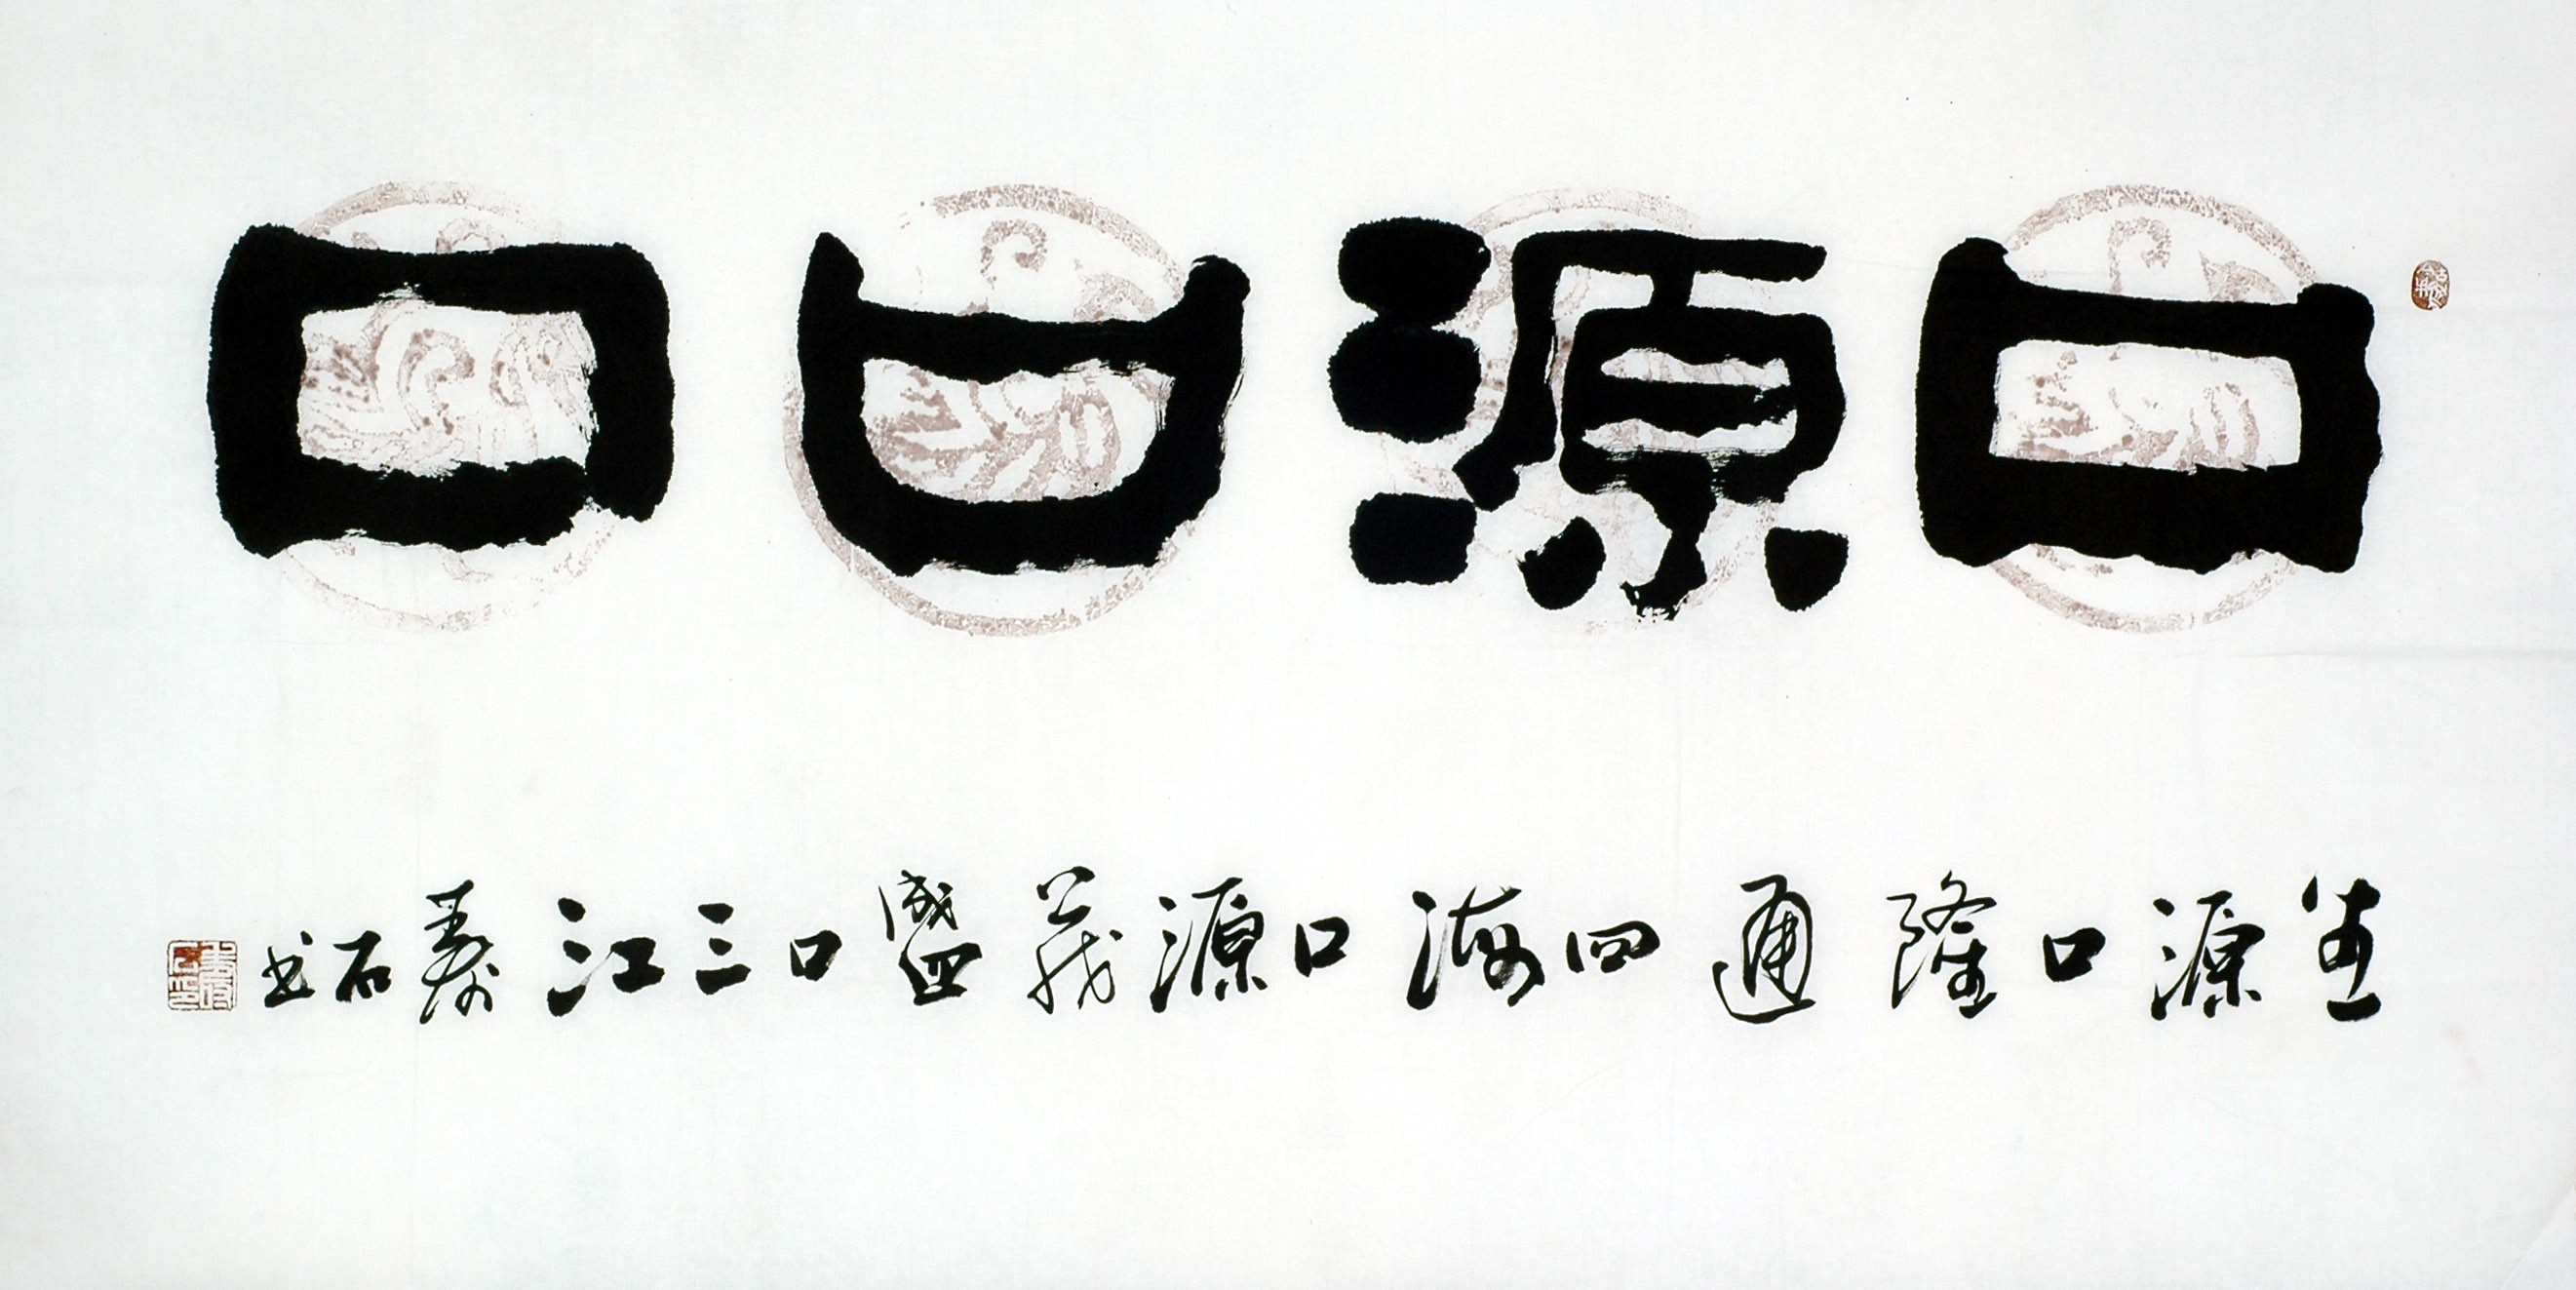 口源口口
源口隆通四海口源義盛口三江壽石书